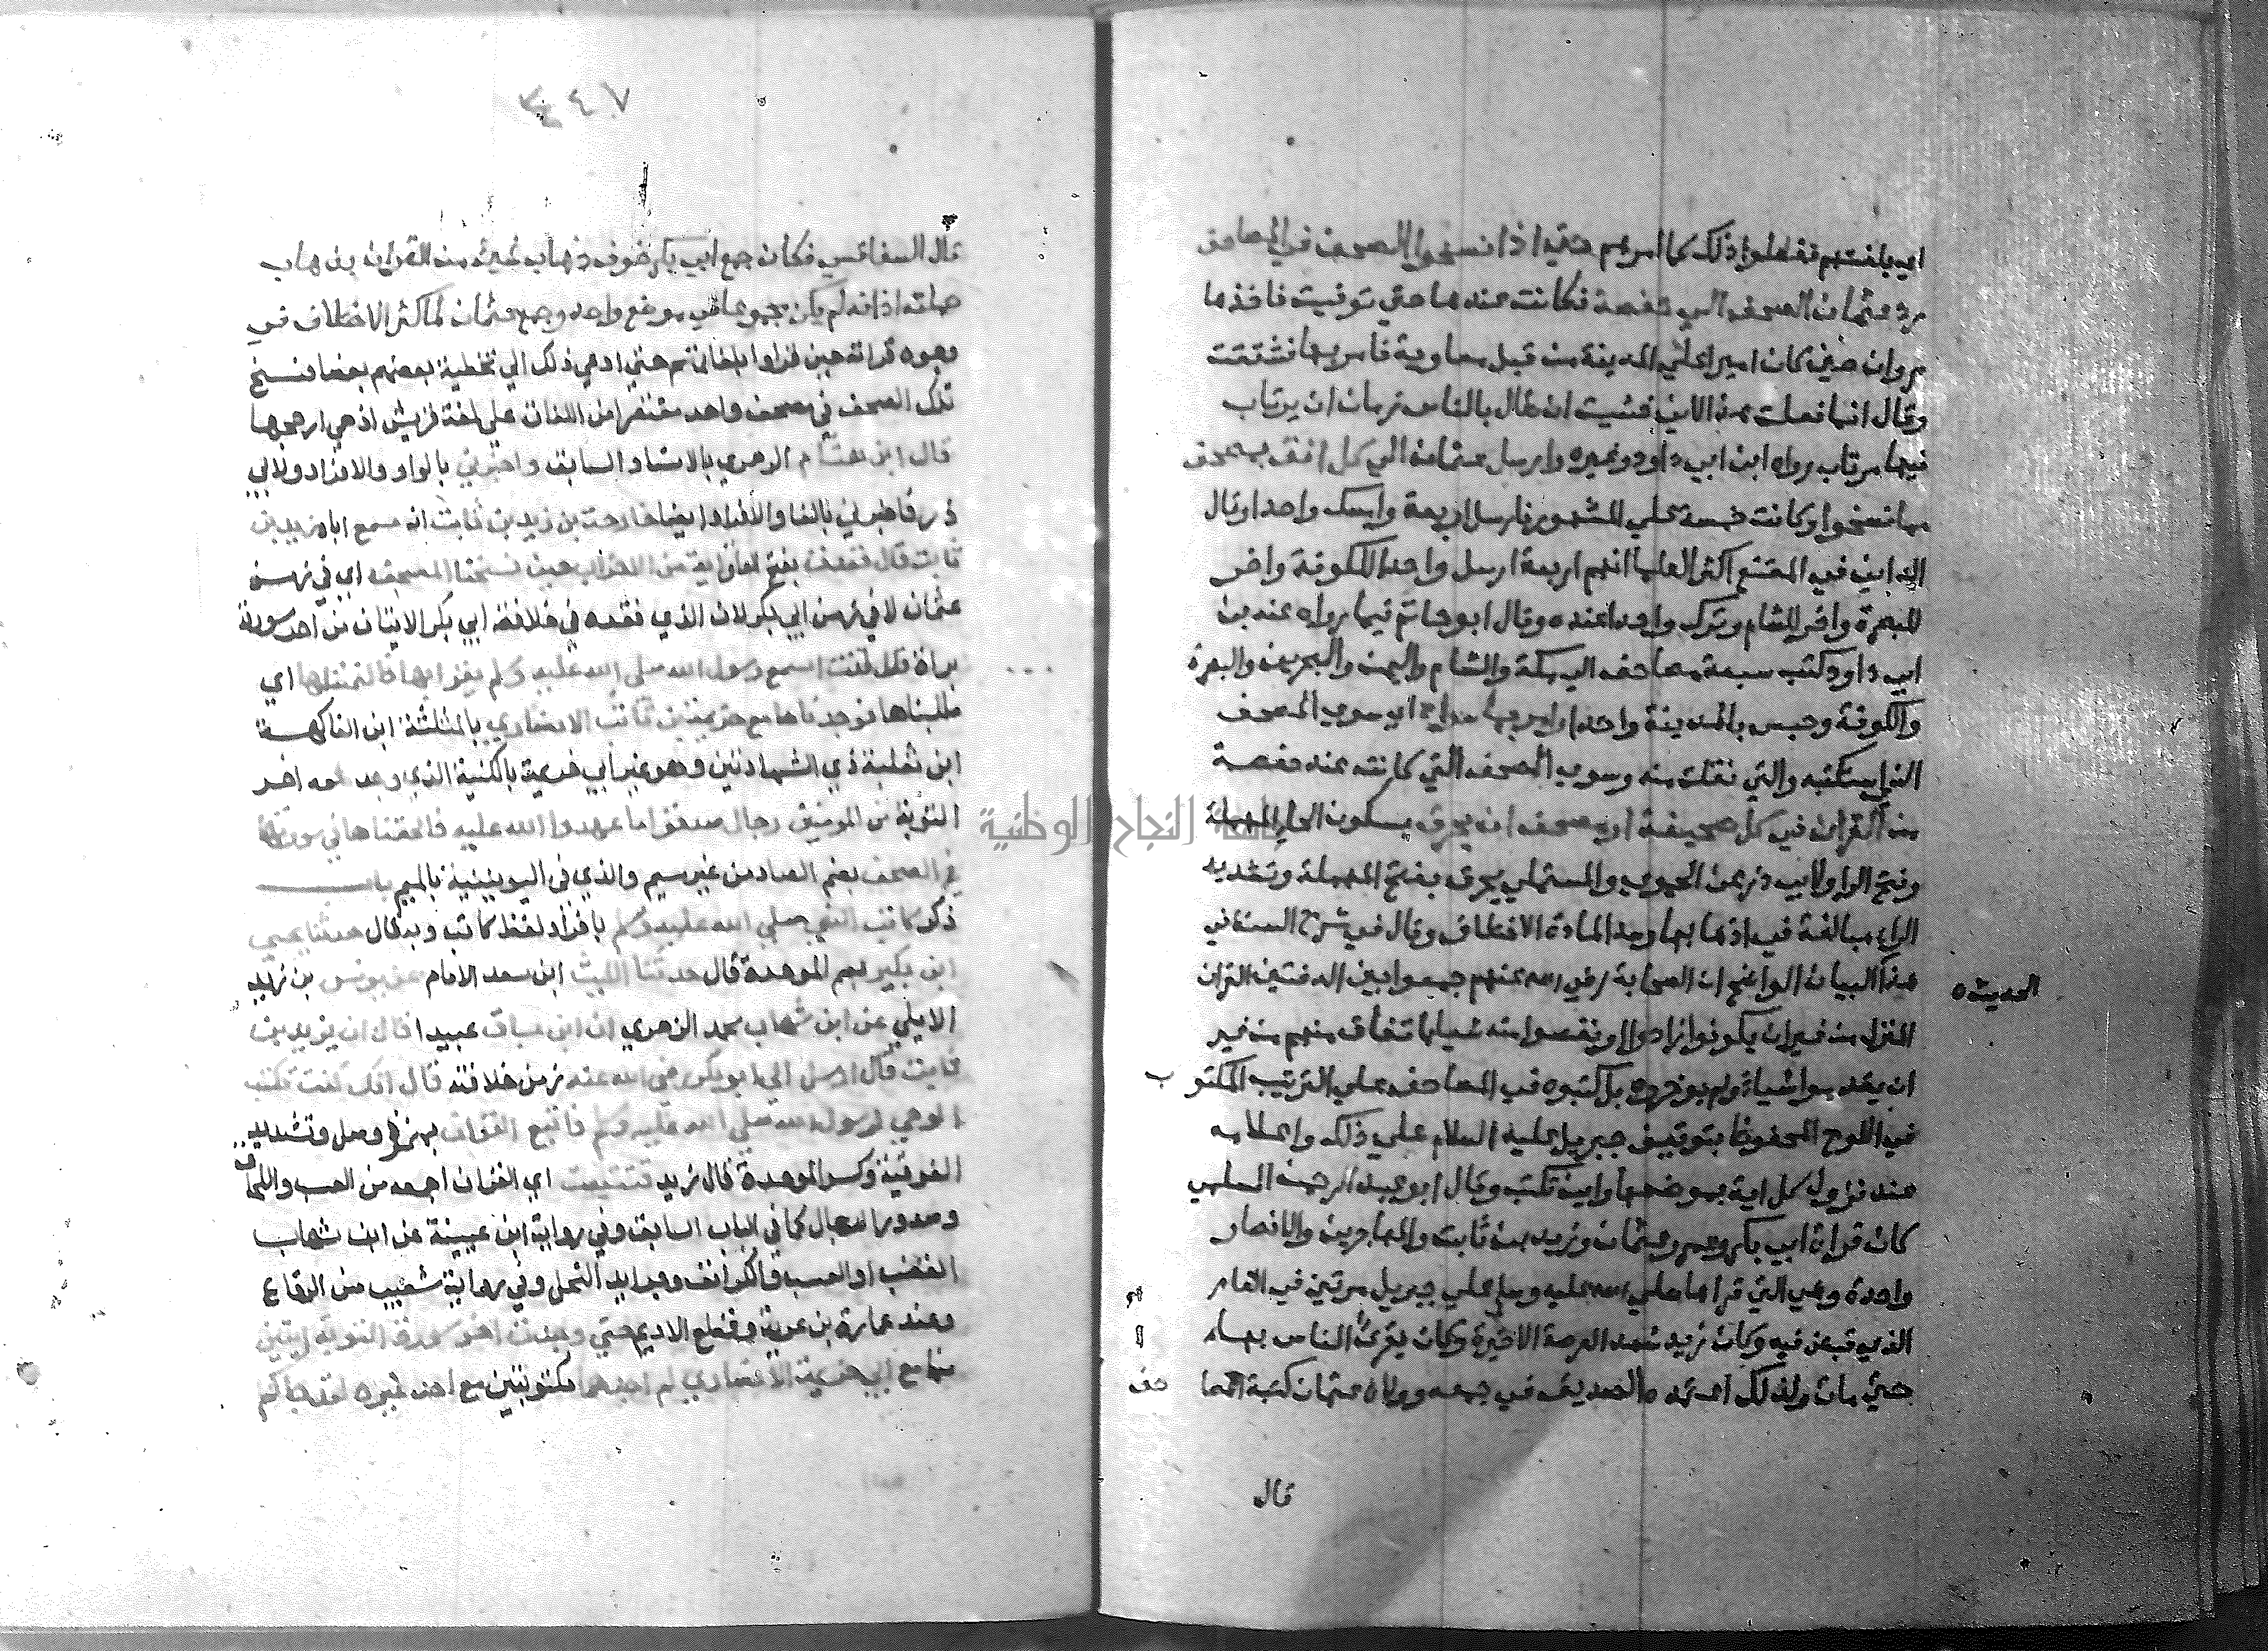 اي بلغتهم ففعلوا ذلك كما امرهم حتي اذا نسخوا الصحف في المصاحف
رد عثمان الصحف الي حفصة فكانت عندها حتي توفيت فاخذها
مروان حين كان اميرا علي المدينة من قبل معاوية فامر بها فشققت
وقال انما فعلت هذا لاني خشيت ان طال بالناس زمان ان يرتاب
فيها مرتاب رواه ابن ابي داود وغيره وارسل عثمان الي كل افق بمصحف
مما نسخوا وكانت خمسة علي المشهور فارسل اربعة وامسك واحدا وقال
الداني في المقنع اكثر العلما انهم اربعة ارسل واحدا للكوفة واخر
للبصرة واخر للشام وترك واحدا عنده وقال ابو حاتم فيما رواه عنه بن
ابي داود كتب سبعة مصاحف الي مكة والشام واليمن والبحرين والبصرة
والكوفة وحبس بالمدينة واحدا وامر بما سواه اي سوي المصحف
الذي استكتبه والتي نقلت منه وسوي الصحف التي كانت عند حفصة
من القران في كل صحيفة او مصحف ان يحرق بسكون الحا المهملة
وفتح الرا ولابي ذر عن الحموي والمستملي يحرق بفتح المهملة وتشديد
الراء مبالغة في اذهابها وسدا لمادة الاختلاف وقال في شرح السنة في
هذا البيان الواضح ان الصحابة رضي الله عنهم جمعوا بين الدفتين القران
الحديث
المنزل من غير ان يكونوا زادوا او نقصوا منه شيئا باتفاق منهم من غير
ان يقدموا شيا او يؤخروه بل كتبوه في المصاحف علي الترتيب المكتوب
في اللوح المحفوظ بتوقيف جبريل عليه السلام علي ذلك واعلامه
عند نزول كل اية بموضعها واين تكتب وقال ابو عبد الرحمن السلمي
كان قراة ابي بكر وعمر وعثمان وزيد بن ثابت والمهاجرين والانصار
واحدة وهي التي قراها صلي الله عليه وسلم علي جبريل مرتين في العام
الذي قبض فيه وكان زيد شهد العرضة الاخيرة وكان يقرئ الناس بها
حتي مات ولذلك اعتمده الصديق في جمعه وولاه عثمان كتبة المصاحف
قال
٣٤٧
قال السفاقسي فكان جمع ابي بكر خوف ذهاب شيء من القران بذهاب
حملته اذ انه لم يكن مجموعا في موضع واحد وجمع عثمان لما كثر الاختلاف في
وجوه قراته حين قراوا بلغاتهم حتي ادي ذلك الي تخطية بعضهم بعضا فنسخ
تلك الصحف في مصحف واحد مقتصرا من اللغات علي لغة قريش اذ هي ارجحها
قال ابن شهاب الزهري بالاسناد السابق واخبرني بالواو والافراد ولابي
ذر فاخبرني بالفا والافراد ايضا خارجة بن زيد بن ثابت انه سمع اباه زيد بن
ثابت قال فقدت بفتح القاف اية من الاحزاب حين نسخنا المصحف اي في زمن
عثمان لا في زمن ابي بكر لان الذي فقده في خلافة ابي بكر الايتان من اخر سورة
براة قد كنت اسمع رسول الله صلي الله عليه وسلم يقرا بها فالتمسناها اي
طلبناها فوجدناها مع خزيمة بن ثابت الانصاري بالمثلثة ابن الفاكهة
ابن ثعلبة ذي الشهادتين وهو غير ابي خزيمة بالكنية الذي وجد معه اخر
التوبة من المومنين رجال صدقوا ما عهدوا الله عليه فالحقناها في سورتها
في الصحف بضم الصاد من غير ميم والذي في اليونينية بالميم باب
ذكر كاتب النبي صلي الله عليه وسلم بافراد لفظ كاتب وبه قال حدثنا يحيي
ابن بكير بضم الموحدة قال حدثنا الليث ابن سعد الامام عن يونس بن يزيد
الايلي عن ابن شهاب محمد الزهري ان ابن سباق عبيدا قال ان زيد بن
ثابت قال ارسل الي ابو بكر رضي الله عنه زمن خلافته قال انك كنت تكتب
الوحي لرسول الله صلي الله عليه وسلم فاتبع القران بهمزة وصل وتشديد
الفوقية وكسر الموحدة قال زيد فتتبعت اي القران اجمعه من العسب واللخاف
وصدور الرجال كما في الباب السابق وفي رواية ابن عيينة عن ابن شهاب
القصب او العسب والكرانف وجرايد النخل وفي رواية شعيب من الرقاع
وعند عمارة بن غزية وقطع الاديم حتي وجدت اخر سورة التوبة ايتين
منها مع ابي خزيمة الانصاري لم اجدهما مكتوبتين مع احد غيره لقد جاكم